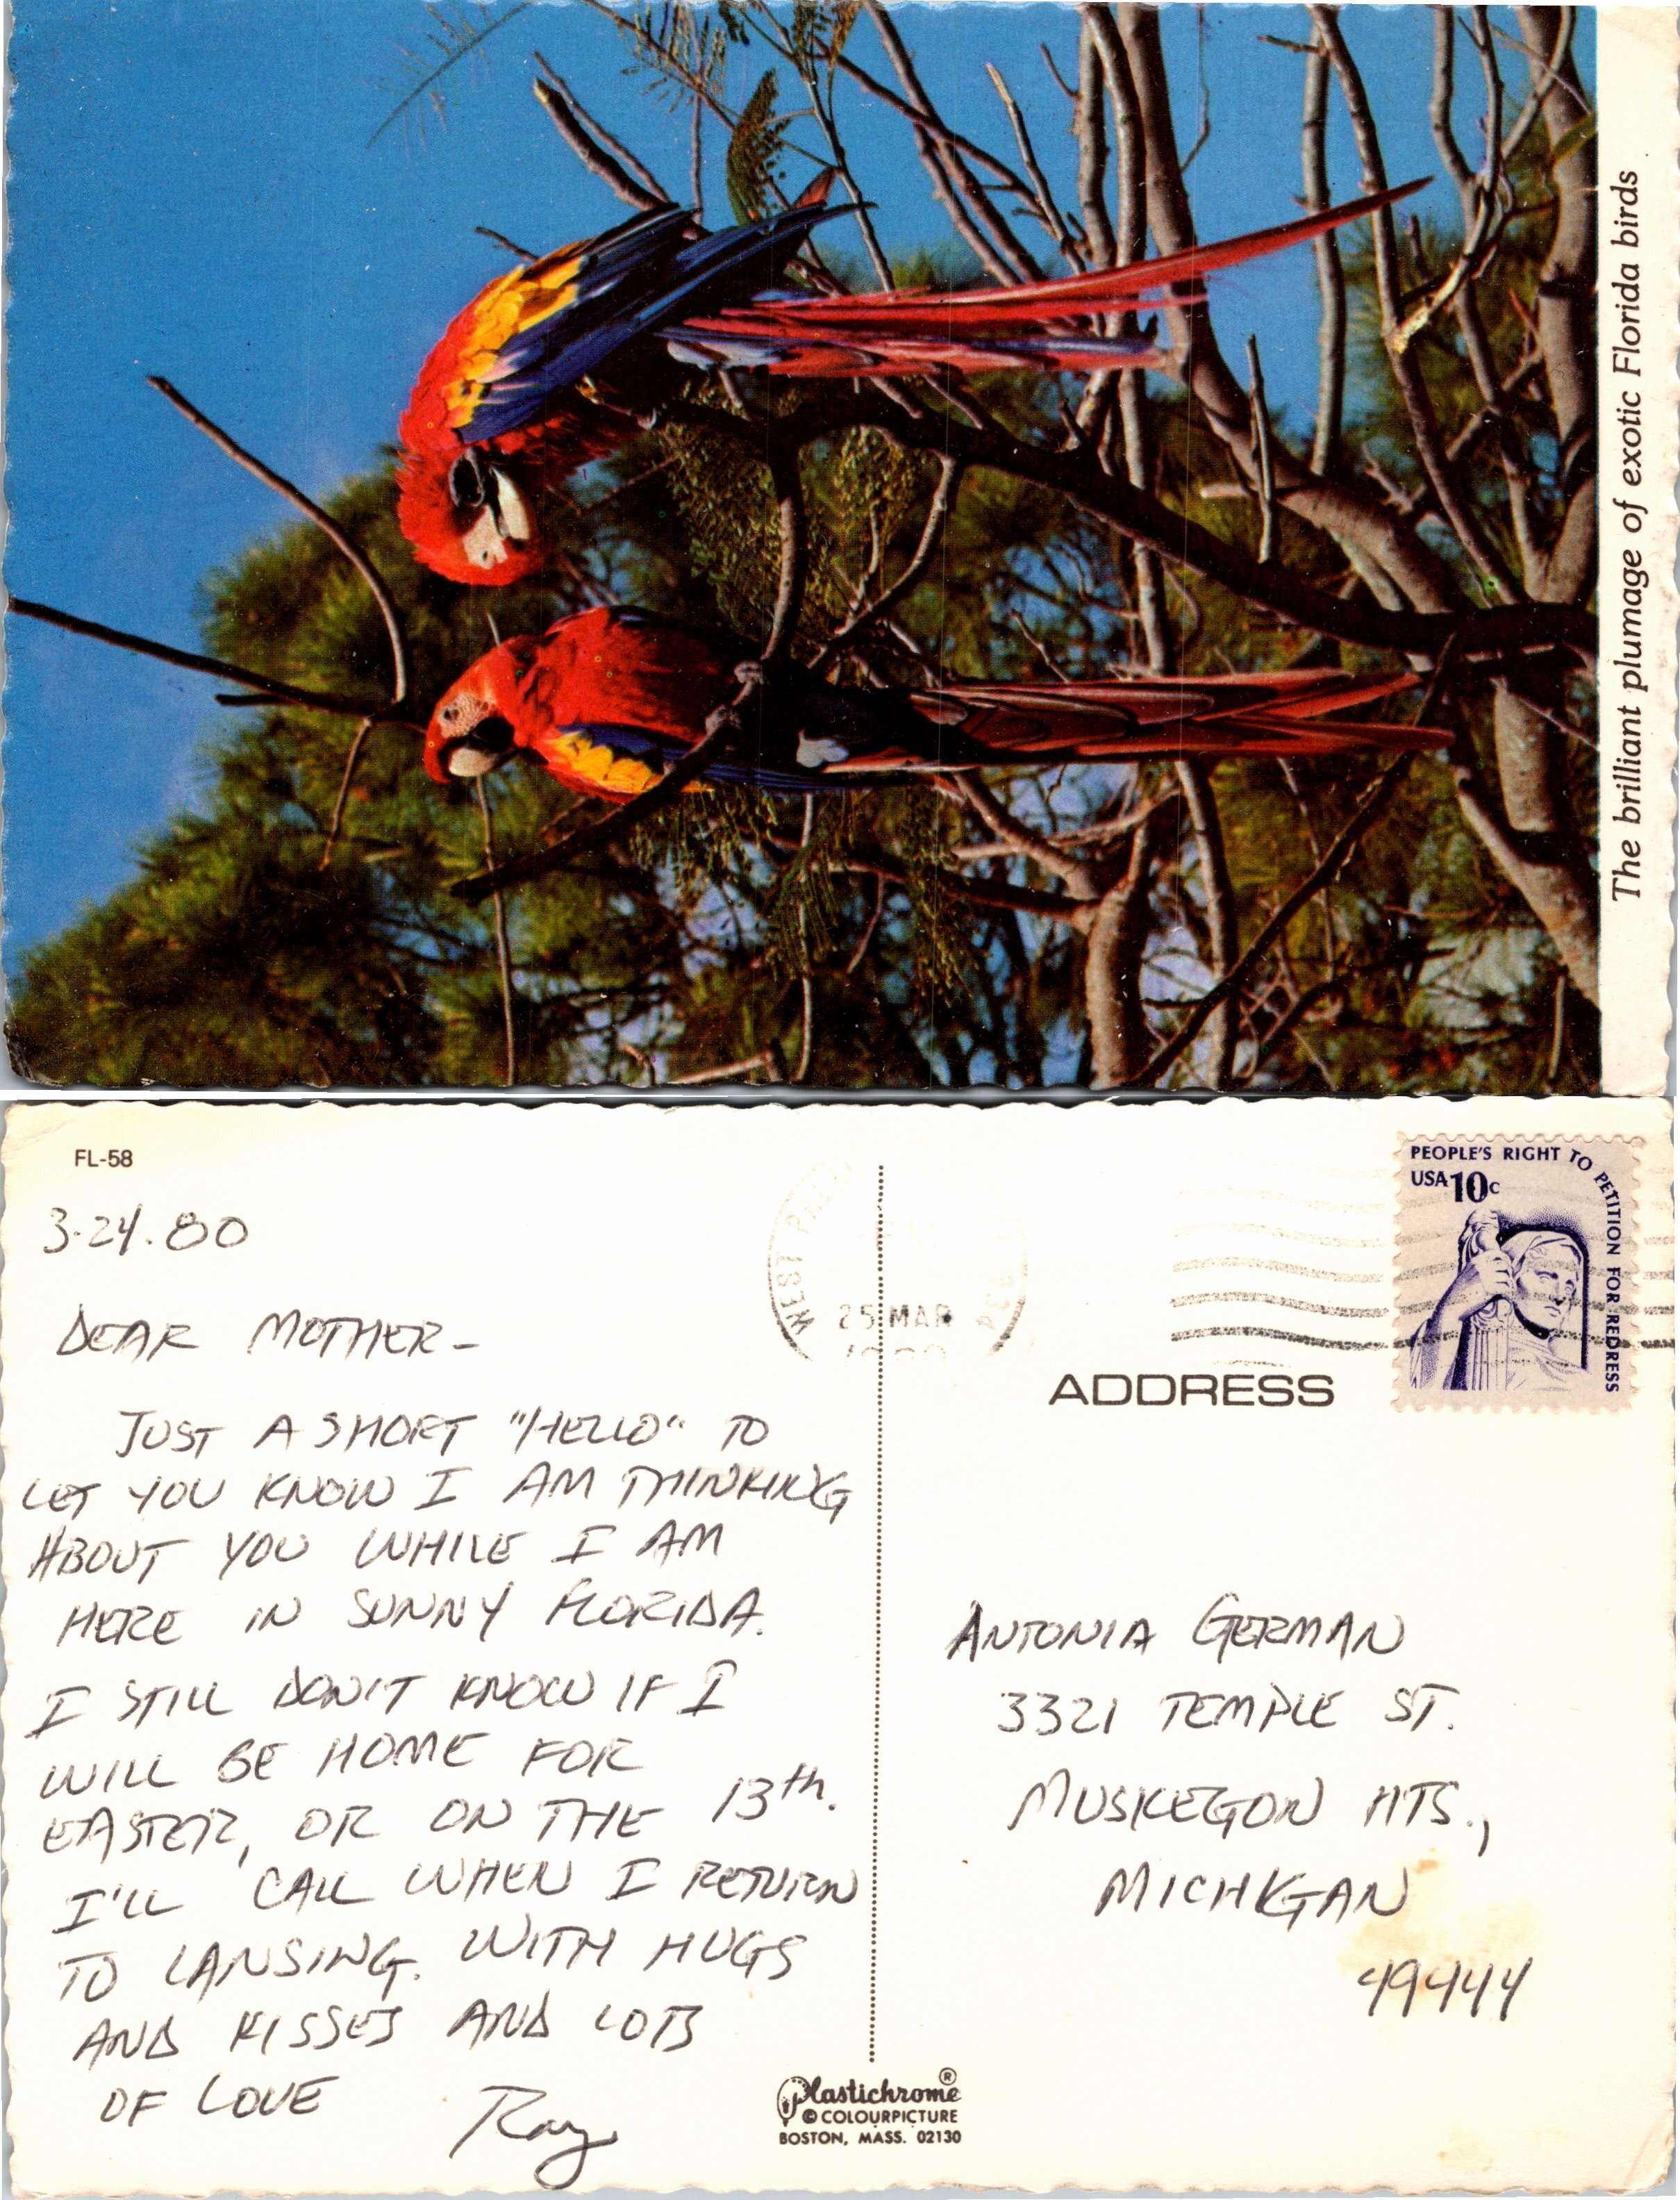 The brilliant plumage of exotic Florida birds
FL-58
3-24-80
DEAR MOTHER-
JUST A SHORT "HELLO" TO
LET YOU KNOW I AM THINKING
ABOUT YOU WHILE I AM
HERE IN SUNNY FLORIDA.
I STILL DON'T KNOW IF I
WILL BE HOME FOR
EASTER, OR ON THE 13th.
I'LL CALL WHEN I RETURN
TO LANSING. WITH HUGS
AND KISSES AND LOTS
OF LOVE
Ray
WEST PALM
25 MAR
PEOPLE'S RIGHT TO PETITION FOR REDRESS
USA 10c
ADDRESS
ANTONIA GERMAN
3321 TEMPLE ST.
MUSKEGON HTS.,
MICHIGAN
49444
Plastichrome®
© COLOURPICTURE
BOSTON, MASS. 02130